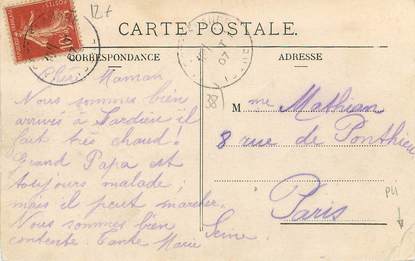 12 f
CARTE POSTALE.
CORRESPONDANCE
ADRESSE
Chère Maman
Nous sommes bien
arrivés à Tardieu il
fait très chaud !
Grand Papa est
toujours malade ;
mais il peut marcher.
Nous sommes bien
contente. Tante Marie
88
Mme Mathian
8 rue de Ponthieu
Paris
Seine.
PH
10
07